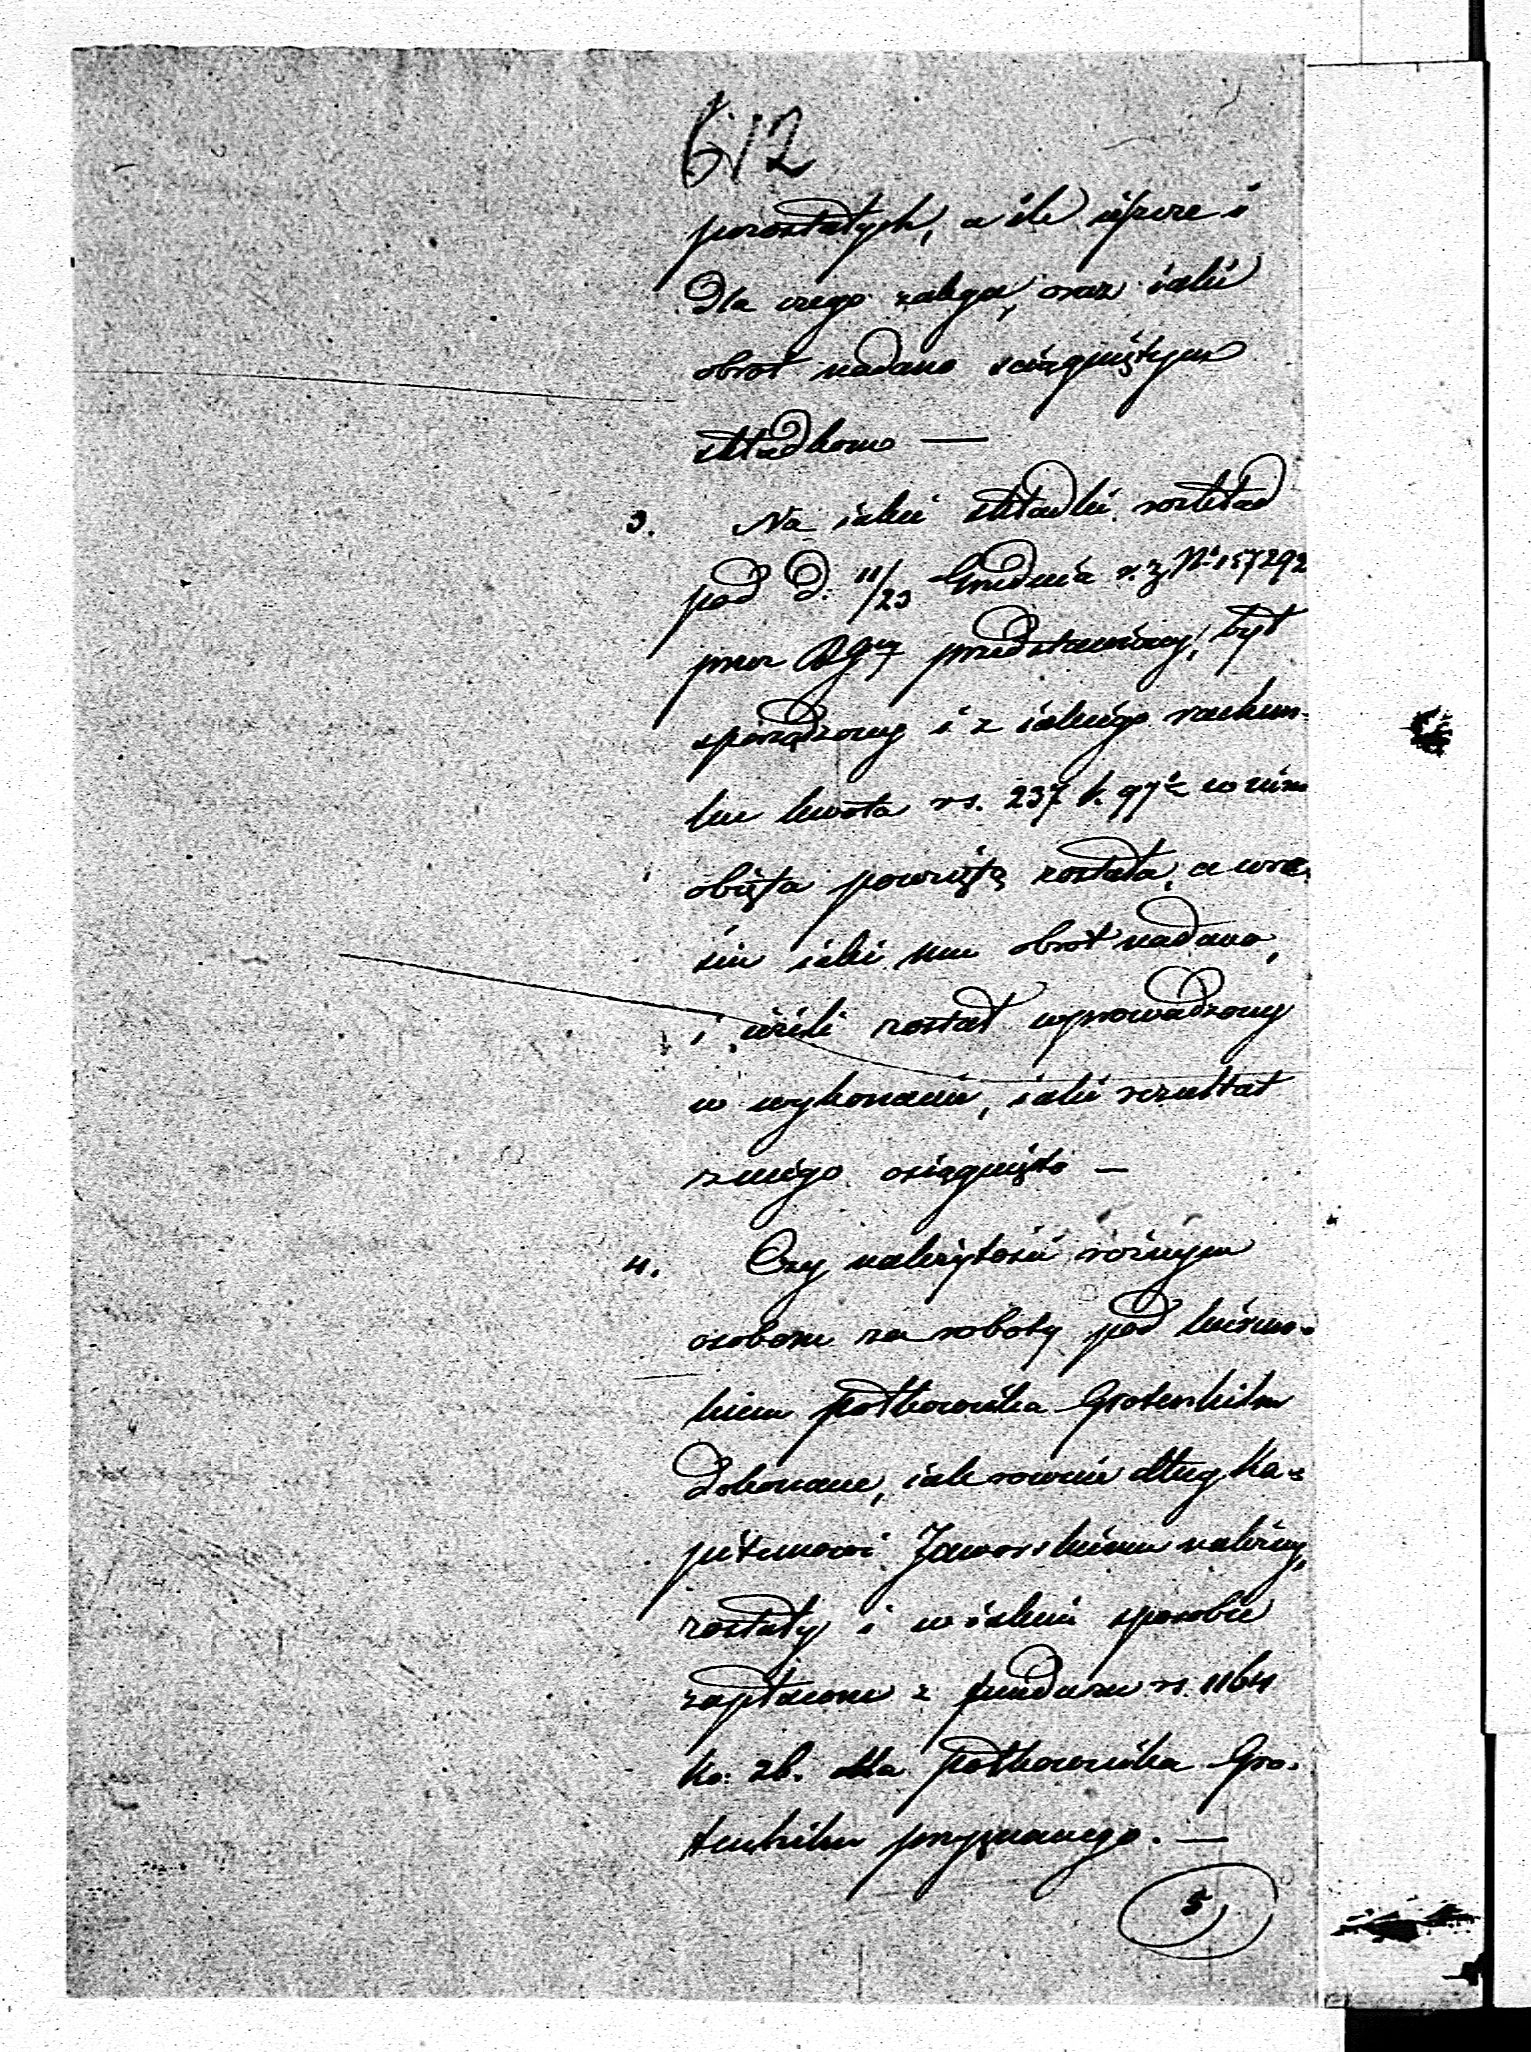 612
pozostałych, a ile ieszcze i
dla czego zalega, oraz iaki
obrót nadano ściągniętym
składkom —
3. Na iakie składki rozkład
pod d: 11/23 Grudnia r. z. N 157292
przez przedstawiony, był
sporządzony i z iakiego rachun-
ku kwota rs. 237 k. 97½ w nim
obięta powziętą została, a wre-
ście iaki mu obrót nadano,
i ieżeli został wyprowadzony
w wykonanie, iaki rezultat
z niego osiągnięto —
4. Czy należytości róźnym
osobom za roboty pod kierun-
kiem półkownika Grotenhielm
dokonane, iak rownie dług Ka-
pitanowi Jaworskiemu należny,
zostały i w iakim sposobie
zapłacone z funduszu rs. 1164
ko: 26. dla półkownika Gro-
tenhielm przyznanego. —
5